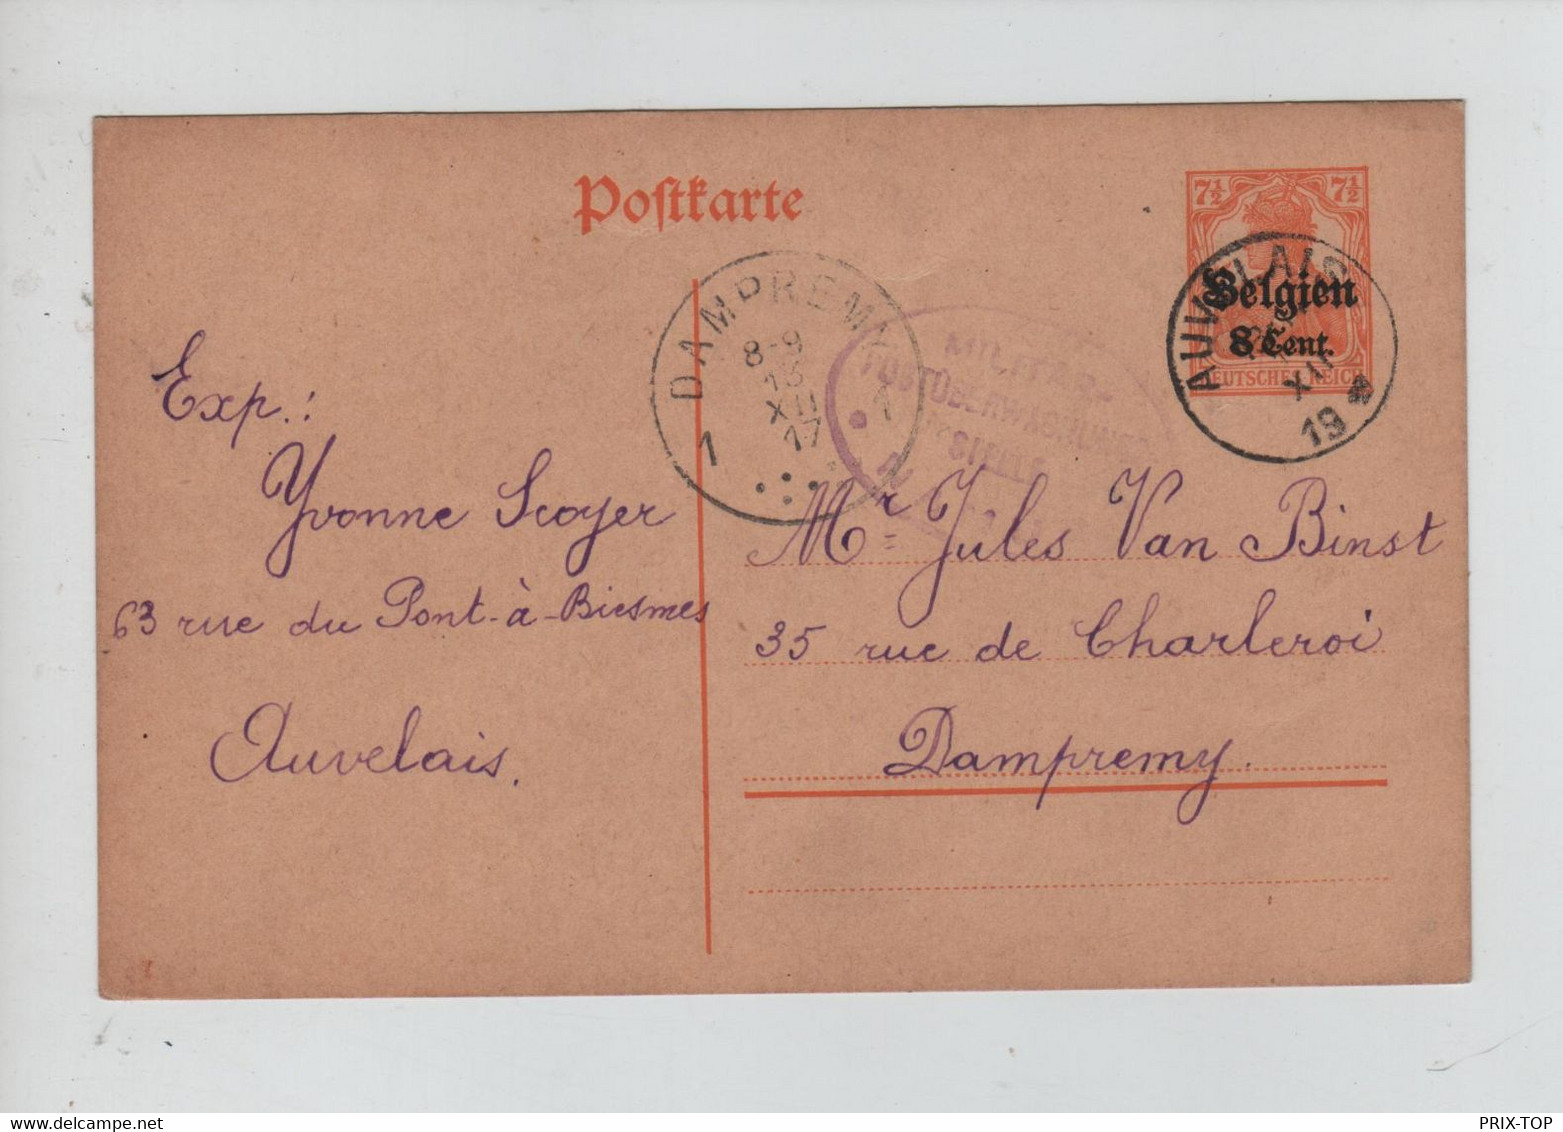 Postkarte
7½ 7½
Belgien
8 Cent.
DEUTSCHES REICH
AUVELAIS
XII
19
DAMPREMY
8-9
13
XII
17
1 1
MILITÄR-
POSTÜBERWACHUNGS
STELLE
Exp.:
Yvonne Scoyer
63 rue du Pont-à-Biesmes
Auvelais.
Mr Jules Van Binst
35 rue de Charleroi
Dampremy.
PRIX-TOP